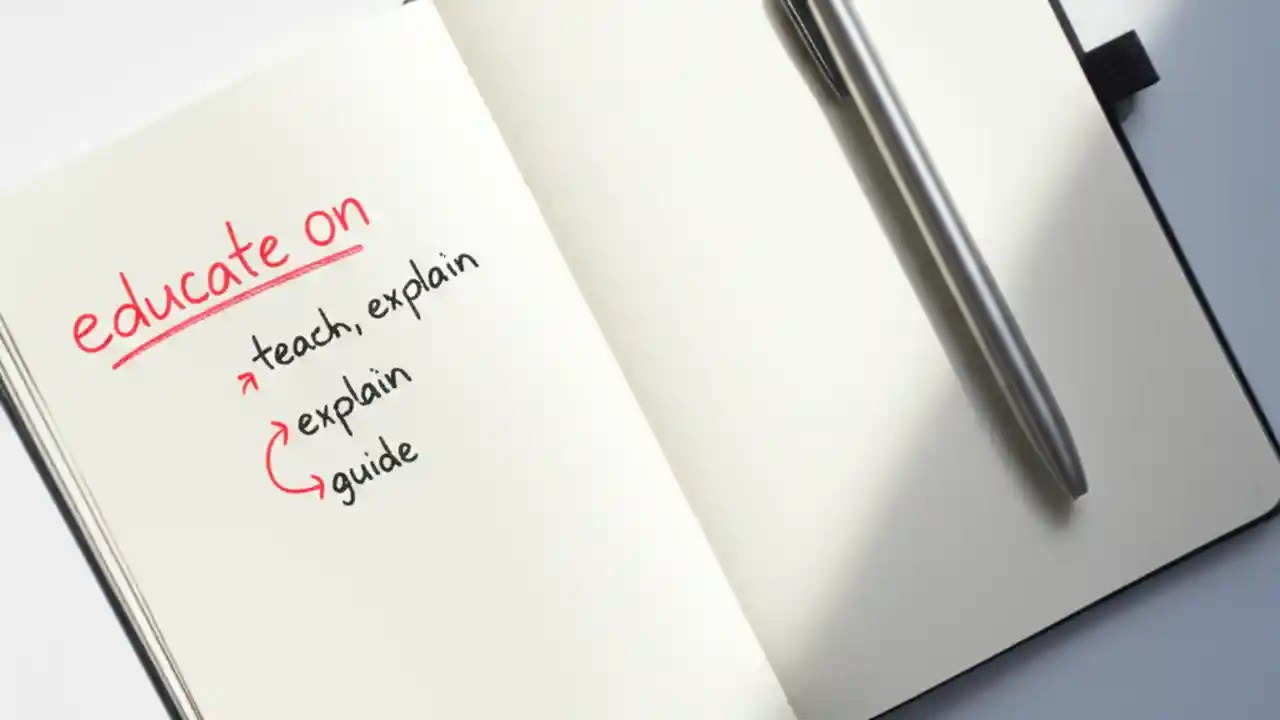 educate on
teach, explain
explain
guide